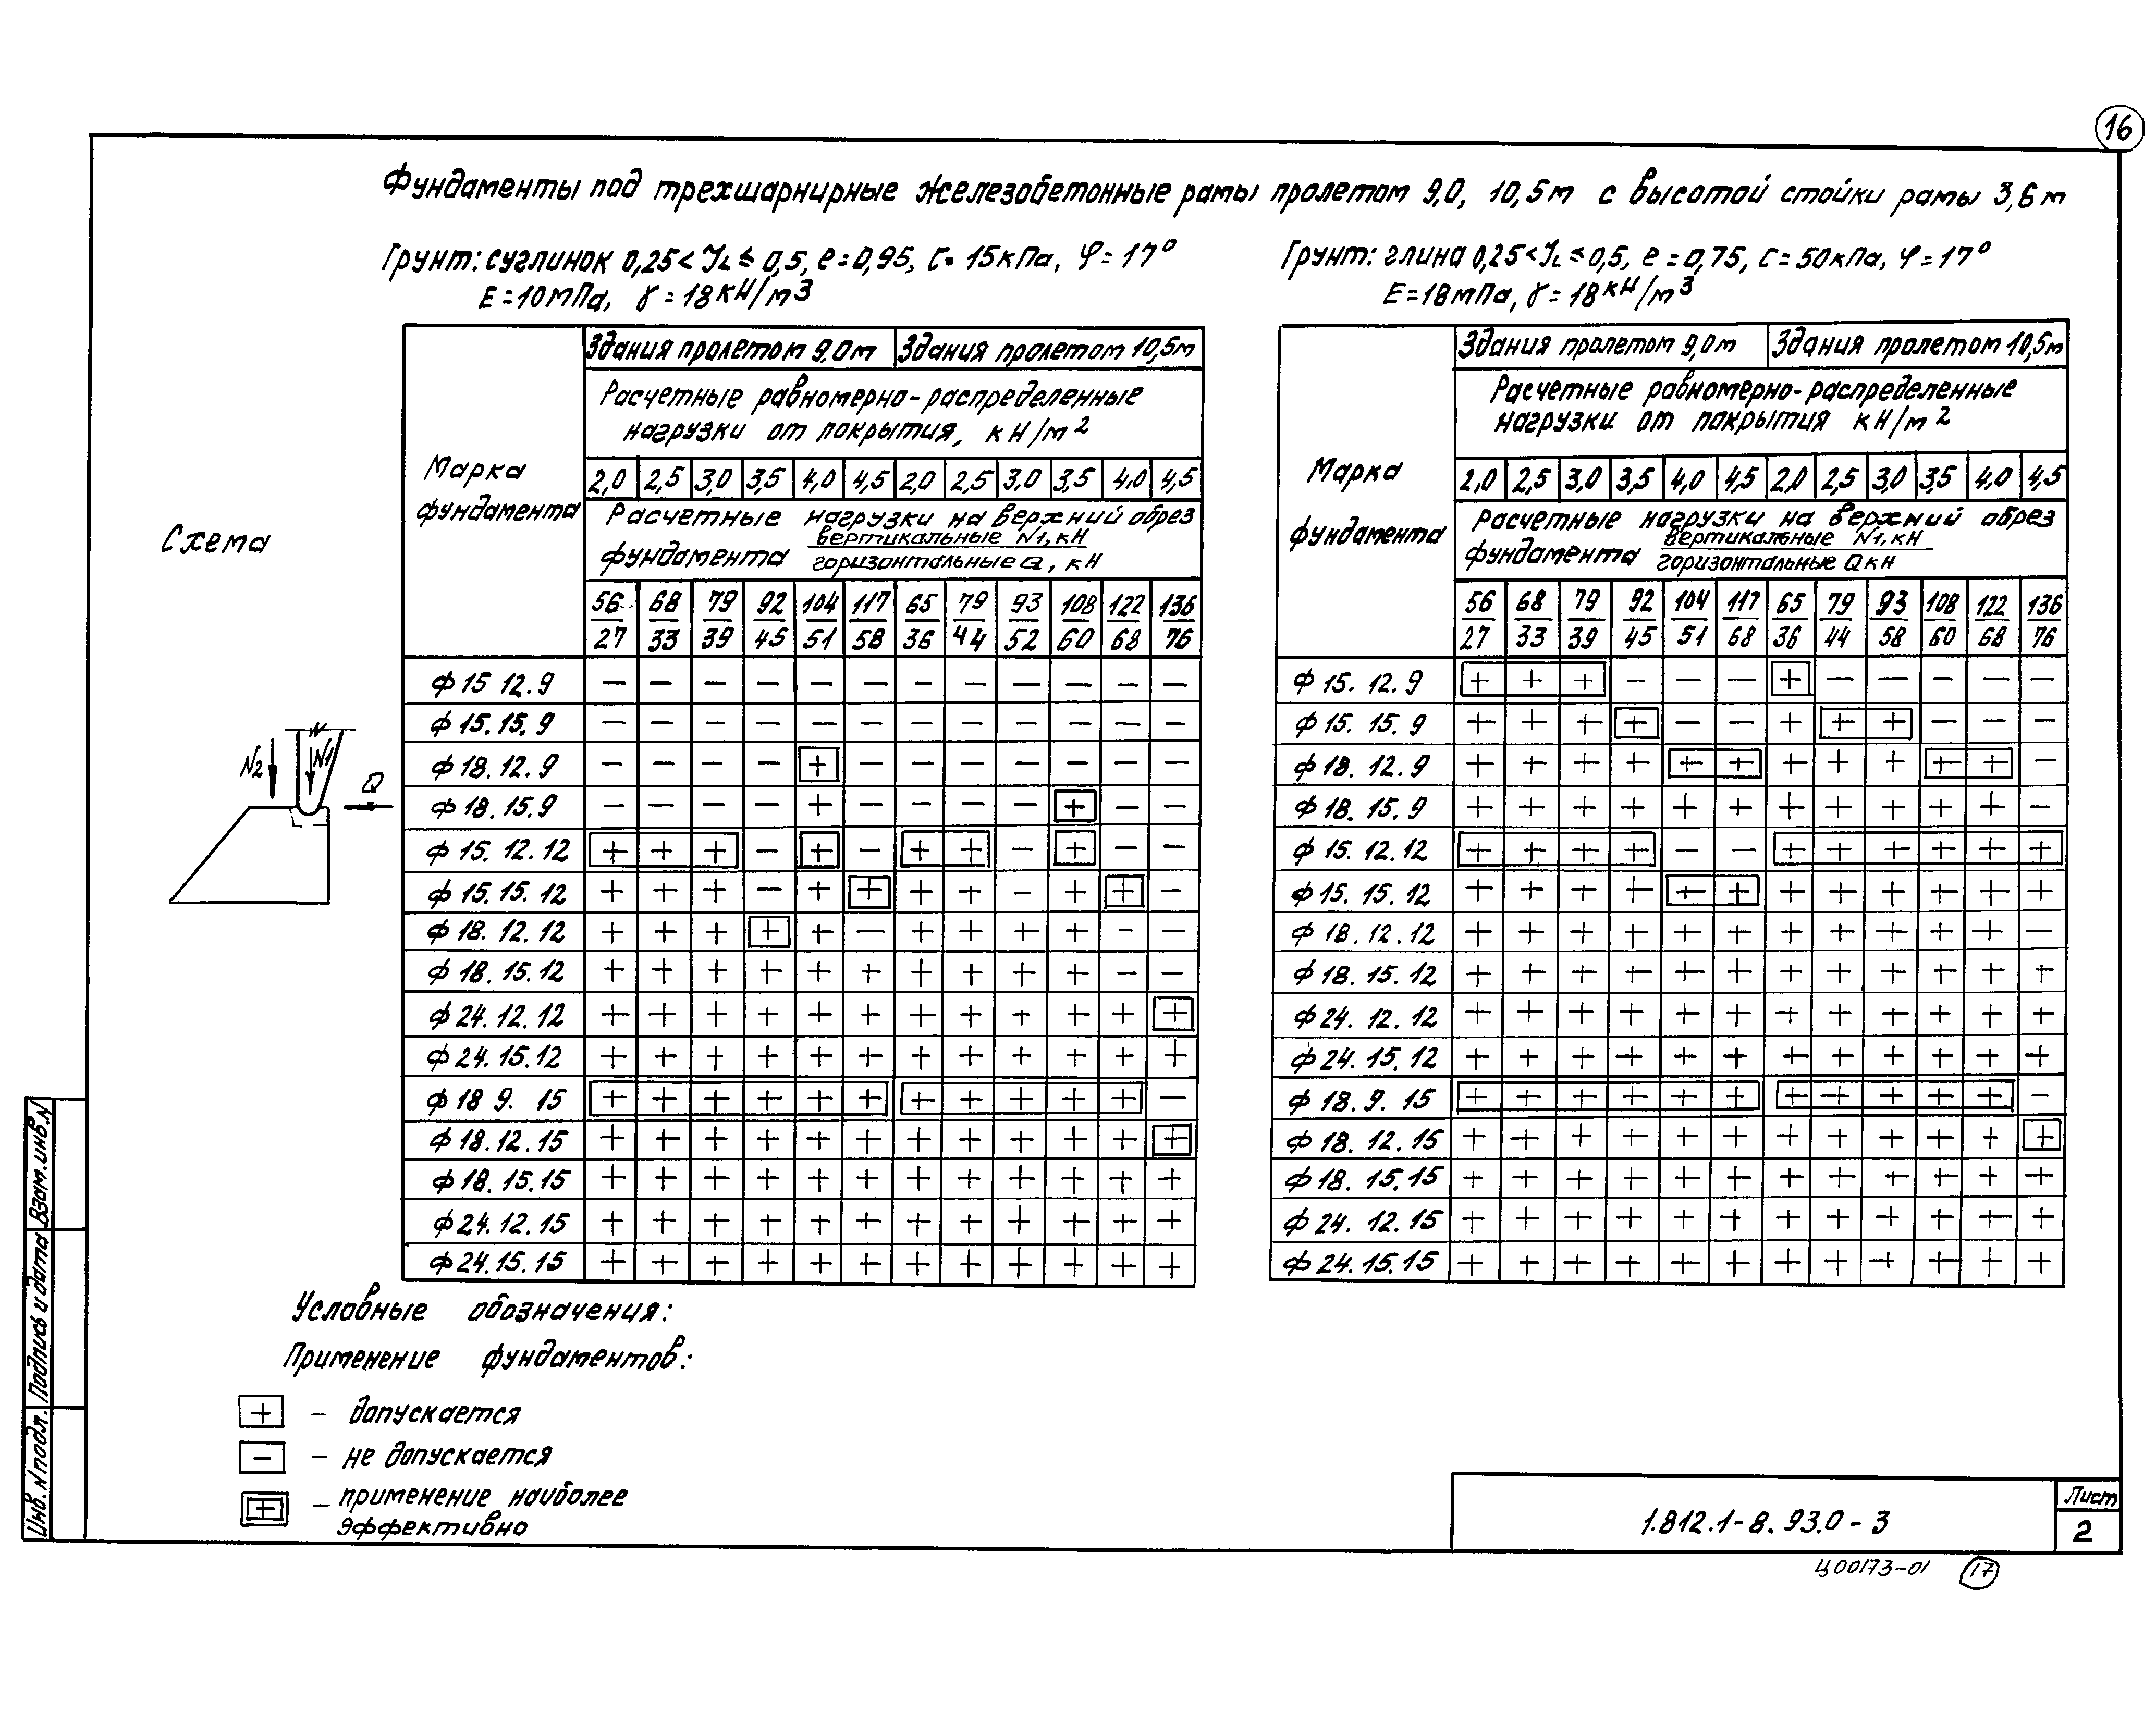 16
Фундаменты под трехшарнирные железобетонные рамы пролетом 9,0, 10,5м с высотой стойки рамы 3,6м
Грунт: суглинок 0,25 < JL ≤ 0,5, e = 0,95, C = 15кПа, φ = 17°
E = 10мПа, γ = 18кН/м3
Марка фундамента
Здания пролетом 9,0м | Здания пролетом 10,5м
Расчетные равномерно-распределенные
нагрузки от покрытия, кН/м2
2,0 | 2,5 | 3,0 | 3,5 | 4,0 | 4,5 | 2,0 | 2,5 | 3,0 | 3,5 | 4,0 | 4,5
Расчетные нагрузки на верхний обрез
фундамента вертикальные N1, кН
горизонтальные Q, кН
56/27 | 68/33 | 79/39 | 92/45 | 104/51 | 117/58 | 65/36 | 79/44 | 93/52 | 108/60 | 122/68 | 136/76
Ф 15 12.9 | − | − | − | − | − | − | − | − | − | − | − | −
Ф 15.15.9 | − | − | − | − | − | − | − | − | − | − | − | −
Ф 18.12.9 | − | − | − | − | + | − | − | − | − | − | − | −
Ф 18.15.9 | − | − | − | − | + | − | − | − | − | + | − | −
Ф 15.12.12 | + | + | + | − | + | − | + | + | − | + | − | −
Ф 15.15.12 | + | + | + | − | + | + | + | + | − | + | + | −
Ф 18.12.12 | + | + | + | + | + | − | + | + | + | + | − | −
Ф 18.15.12 | + | + | + | + | + | + | + | + | + | + | − | −
Ф 24.12.12 | + | + | + | + | + | + | + | + | + | + | + | +
Ф 24.15.12 | + | + | + | + | + | + | + | + | + | + | + | +
Ф 18 9. 15 | + | + | + | + | + | + | + | + | + | + | + | −
Ф 18.12.15 | + | + | + | + | + | + | + | + | + | + | + | +
Ф 18.15.15 | + | + | + | + | + | + | + | + | + | + | + | +
Ф 24.12.15 | + | + | + | + | + | + | + | + | + | + | + | +
Ф 24.15.15 | + | + | + | + | + | + | + | + | + | + | + | +
Грунт: глина 0,25 < JL ≤ 0,5, e = 0,75, C = 50кПа, φ = 17°
E = 18мПа, γ = 18кН/м3
Марка фундамента
Здания пролетом 9,0м | Здания пролетом 10,5м
Расчетные равномерно-распределенные
нагрузки от покрытия кН/м2
2,0 | 2,5 | 3,0 | 3,5 | 4,0 | 4,5 | 2,0 | 2,5 | 3,0 | 3,5 | 4,0 | 4,5
Расчетные нагрузки на верхний обрез
фундамента вертикальные N1, кН
горизонтальные Q кН
56/27 | 68/33 | 79/39 | 92/45 | 104/51 | 117/68 | 65/36 | 79/44 | 93/58 | 108/60 | 122/68 | 136/76
Ф 15.12.9 | + | + | + | − | − | − | + | − | − | − | − | −
Ф 15.15.9 | + | + | + | + | − | − | + | + | + | − | − | −
Ф 18.12.9 | + | + | + | + | + | + | + | + | + | + | + | −
Ф 18.15.9 | + | + | + | + | + | + | + | + | + | + | + | −
Ф 15.12.12 | + | + | + | + | − | − | + | + | + | + | + | +
Ф 15.15.12 | + | + | + | + | + | + | + | + | + | + | + | +
Ф 18.12.12 | + | + | + | + | + | + | + | + | + | + | + | −
Ф 18.15.12 | + | + | + | + | + | + | + | + | + | + | + | +
Ф 24.12.12 | + | + | + | + | + | + | + | + | + | + | + | +
Ф 24.15.12 | + | + | + | + | + | + | + | + | + | + | + | +
Ф 18.9.15 | + | + | + | + | + | + | + | + | + | + | + | −
Ф 18.12.15 | + | + | + | + | + | + | + | + | + | + | + | +
Ф 18.15.15 | + | + | + | + | + | + | + | + | + | + | + | +
Ф 24.12.15 | + | + | + | + | + | + | + | + | + | + | + | +
Ф 24.15.15 | + | + | + | + | + | + | + | + | + | + | + | +
Схема
N2 N1 Q
Условные обозначения:
Применение фундаментов:
+ – допускается
− – не допускается
+ – применение наиболее
эффективно
Инв. N подл. | Подпись и дата | Взам. инв. N
1.812.1-8.93.0-3
Лист
2
Ц00173-01 17